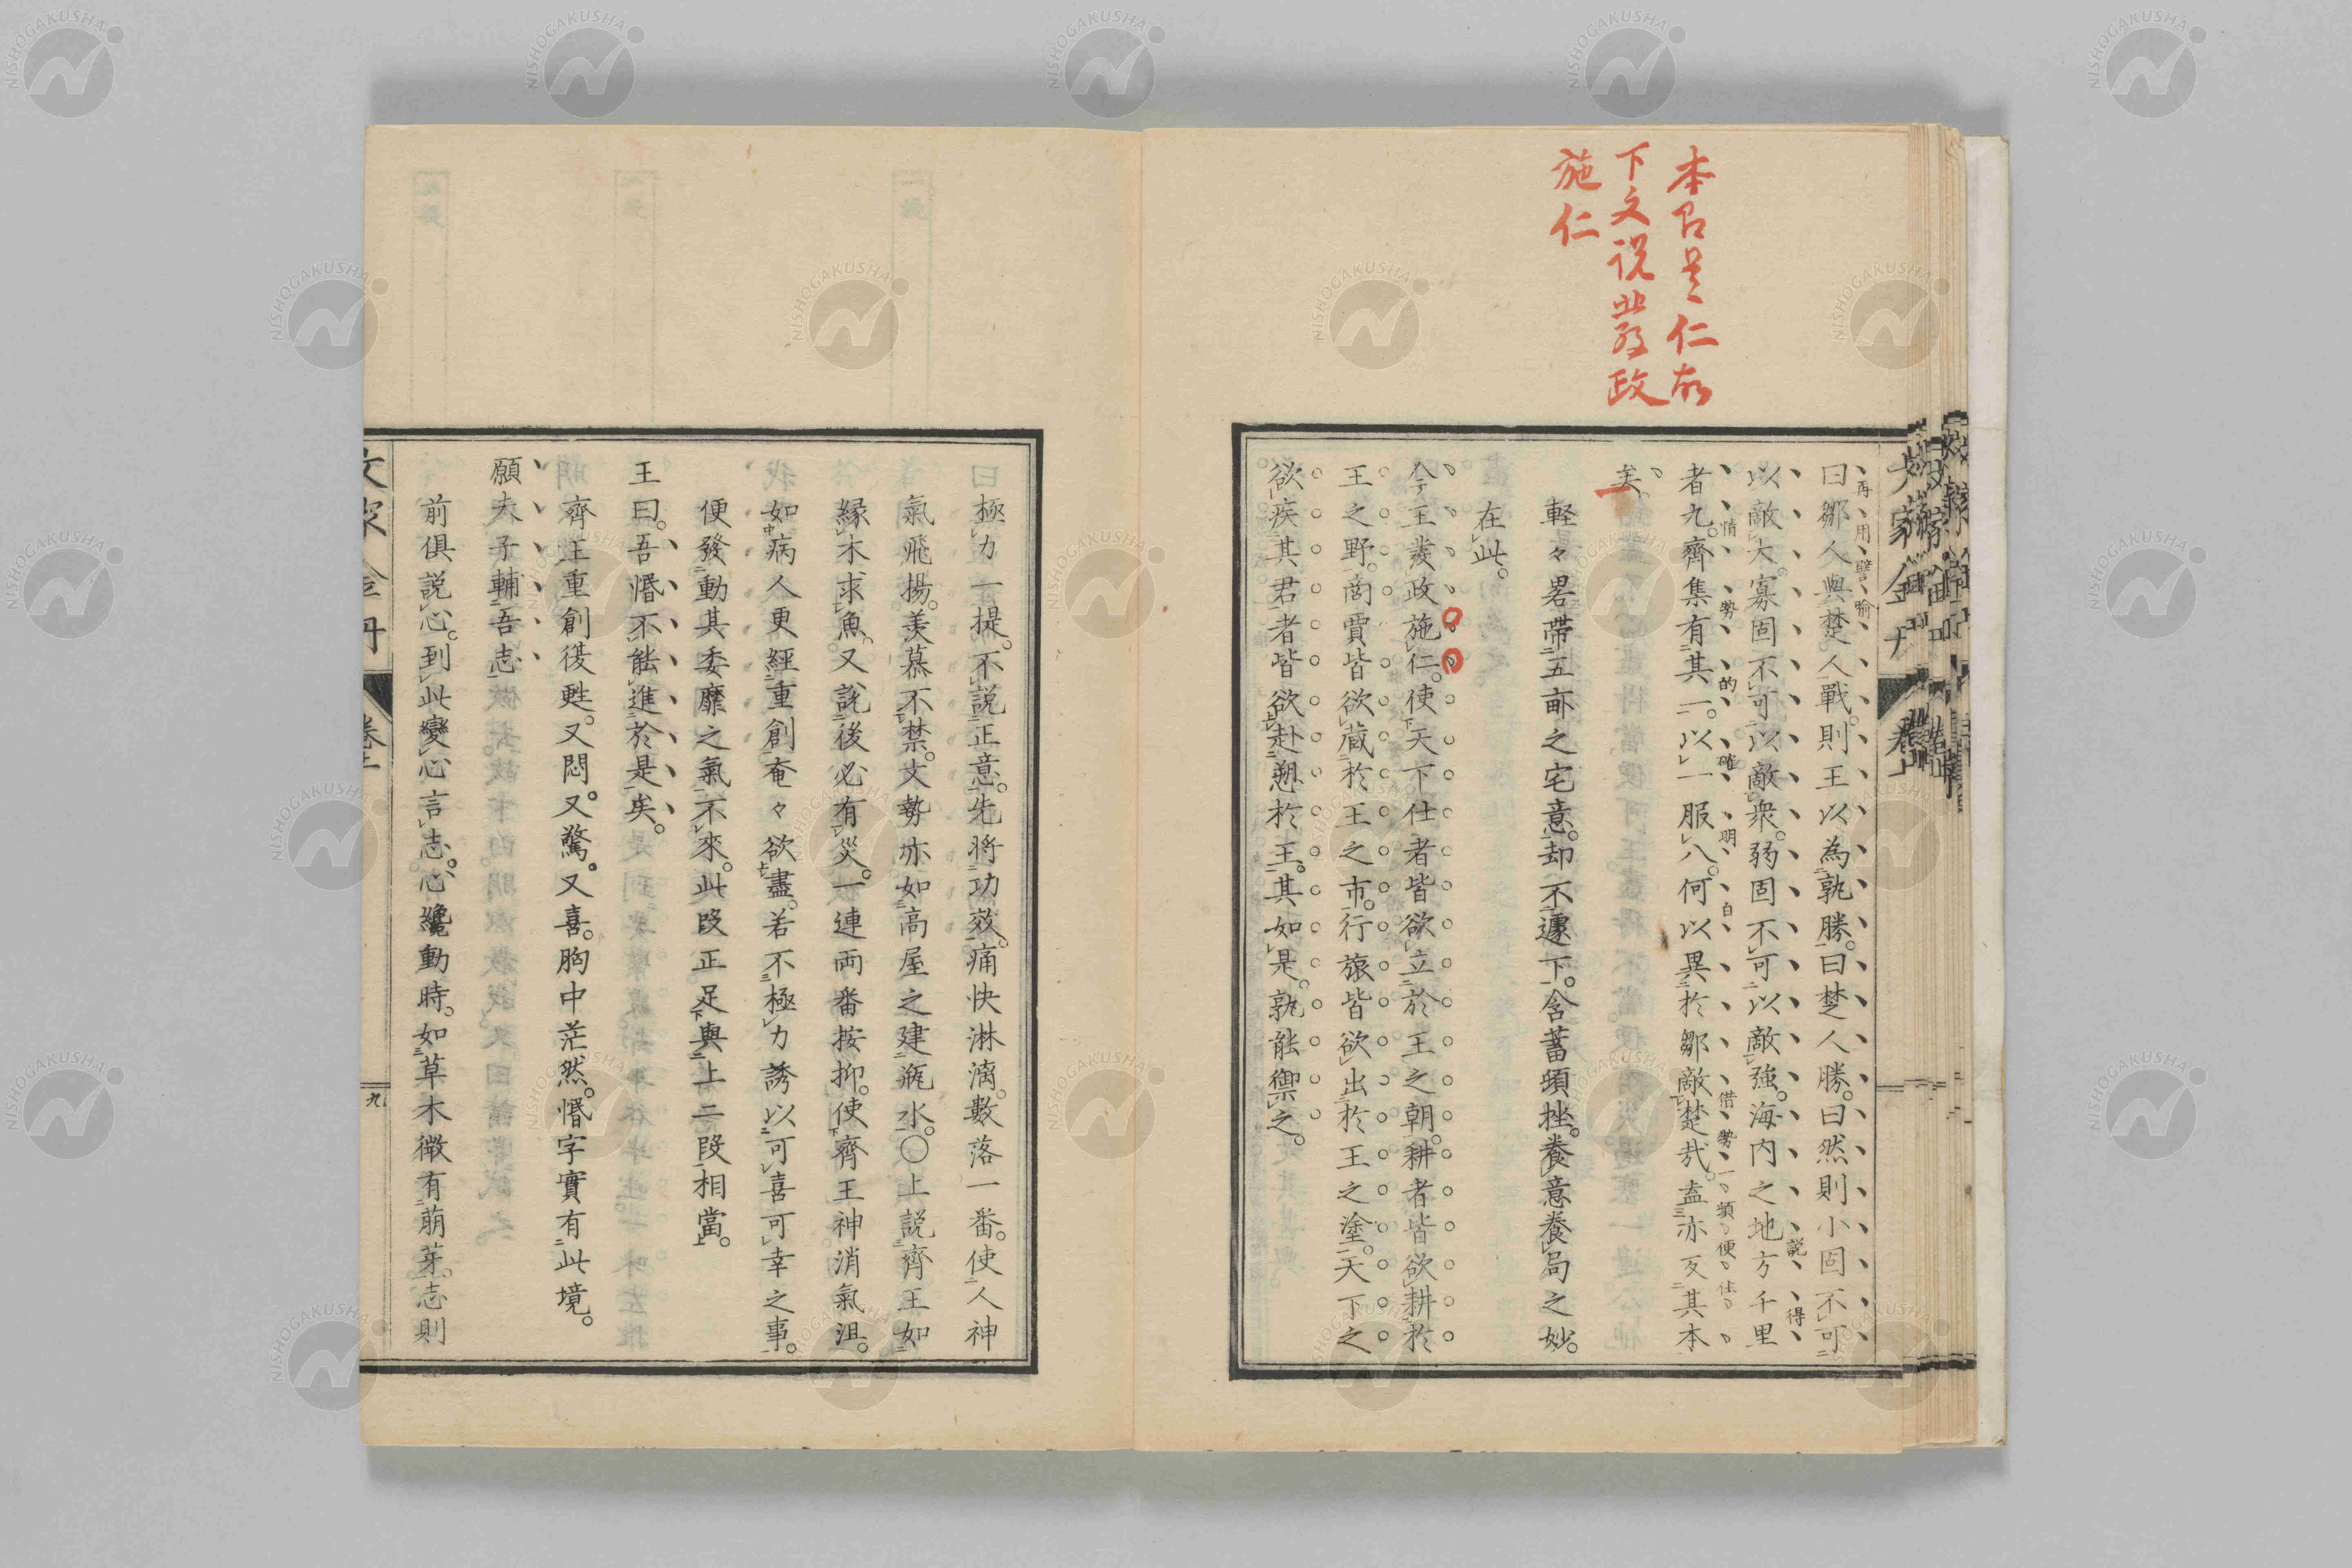 本
下文説
政
施仁
再用譬喩
曰鄒人與楚人戰。則王以為孰勝。曰楚人勝。曰然則小固不可
以敵大。寡固不可以敵衆。弱固不可以敵強。海内之地方千里
説得
者九。齊集有其一。以一服八。何以異於鄒敵楚哉。盍亦反其本
情勢的確明白借勢一頓便住
矣。
軽々畧帶五畝之宅意。却不遽下。含蓄頓挫。養意養局之妙。
在此。
今王發政施仁。使天下仕者皆欲立於王之朝。耕者皆欲耕於
王之野。商賈皆欲蔵於王之市。行旅皆欲出於王之塗。天下之
欲疾其君者皆欲赴愬於王。其如是。孰能禦之。
極力一提。不説正意。先将功效。痛快淋漓。數落一番。使人神
氣飛揚。羨慕不禁。文勢亦如高屋之建瓶水。〇上説齊王如
縁木求魚。又說後必有災。一連両番按抑。使齊王神消氣沮。
如病人更經重創奄々欲盡。若不極力誘以可喜可幸之事。
便發動其委靡之氣不來。此段正足與上二段相當。
王曰。吾惛不能進於是矣。
齊王重創復甦。又悶又驚。又喜。胸中茫然。惛字實有此境。
願夫子輔吾志
前俱説心。到此變心言志。心纔動時。如草木微有萠芽。志則
文家金丹
卷上
九
NISHOGAKUSHA